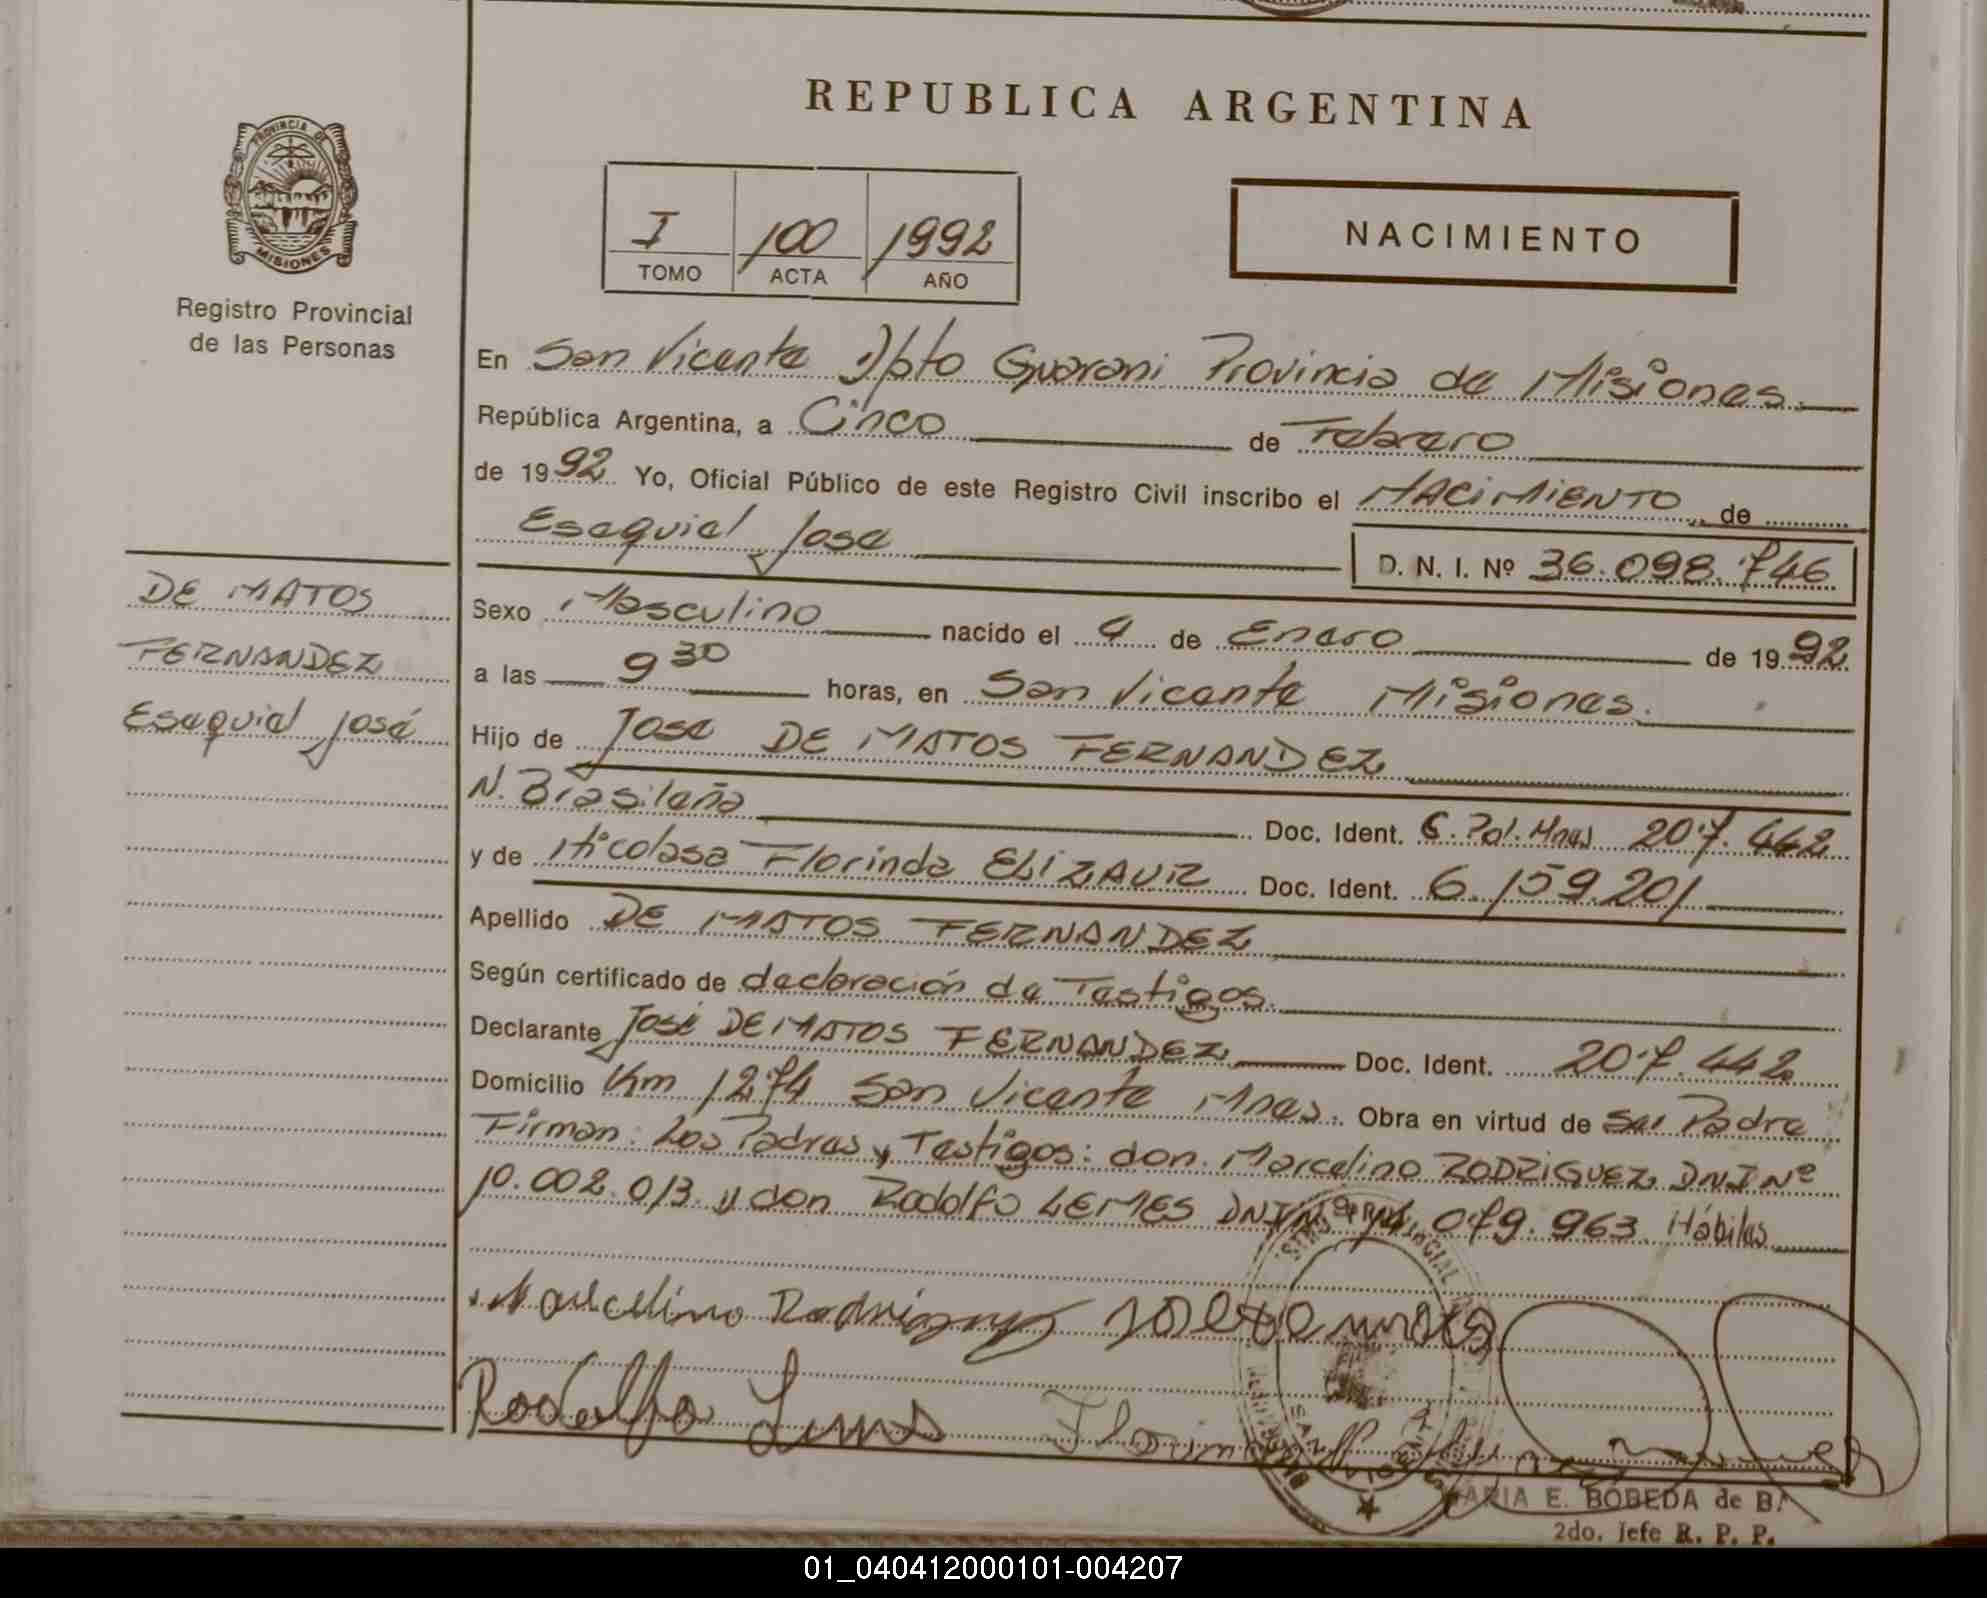 REPUBLICA ARGENTINA
PROVINCIA DE
MISIONES
Registro Provincial
de las Personas
I 100 1992
TOMO ACTA AÑO
NACIMIENTO
En San Vicente Dpto Guarani Provincia de Misiones.
República Argentina, a Cinco de Febrero
de 1992 Yo, Oficial Público de este Registro Civil inscribo el NACIMIENTO de
Esequiel Jose D. N. I. Nº 36.098.746
DE MATOS
FERNANDEZ
Esequiel José
Sexo Masculino nacido el 9 de Enero de 1992
a las 9 30 horas, en San Vicente Misiones.
Hijo de Jose DE MATOS FERNANDEZ
N. Brasileña Doc. Ident. C. Pol. Mnes 207.442
y de Nicolasa Florinda ELIZAUR Doc. Ident. 6.159.201
Apellido DE MATOS FERNANDEZ
Según certificado de declaración de Testigos.
Declarante José DE MATOS FERNANDEZ Doc. Ident. 207.442
Domicilio Km 1274 San Vicente Mnes. Obra en virtud de Ser Padre
Firman: Los Padres y Testigos: don Marcelino RODRIGUEZ DNI Nº
10.002.013 y don Rodolfo LEMES DNI Nº 14.079.963 Hábiles
Marcelino Rodriguez
Rodolfo Lemes
MARIA E. BOBEDA de B.
2do. Jefe R. P. P.
01_040412000101-004207